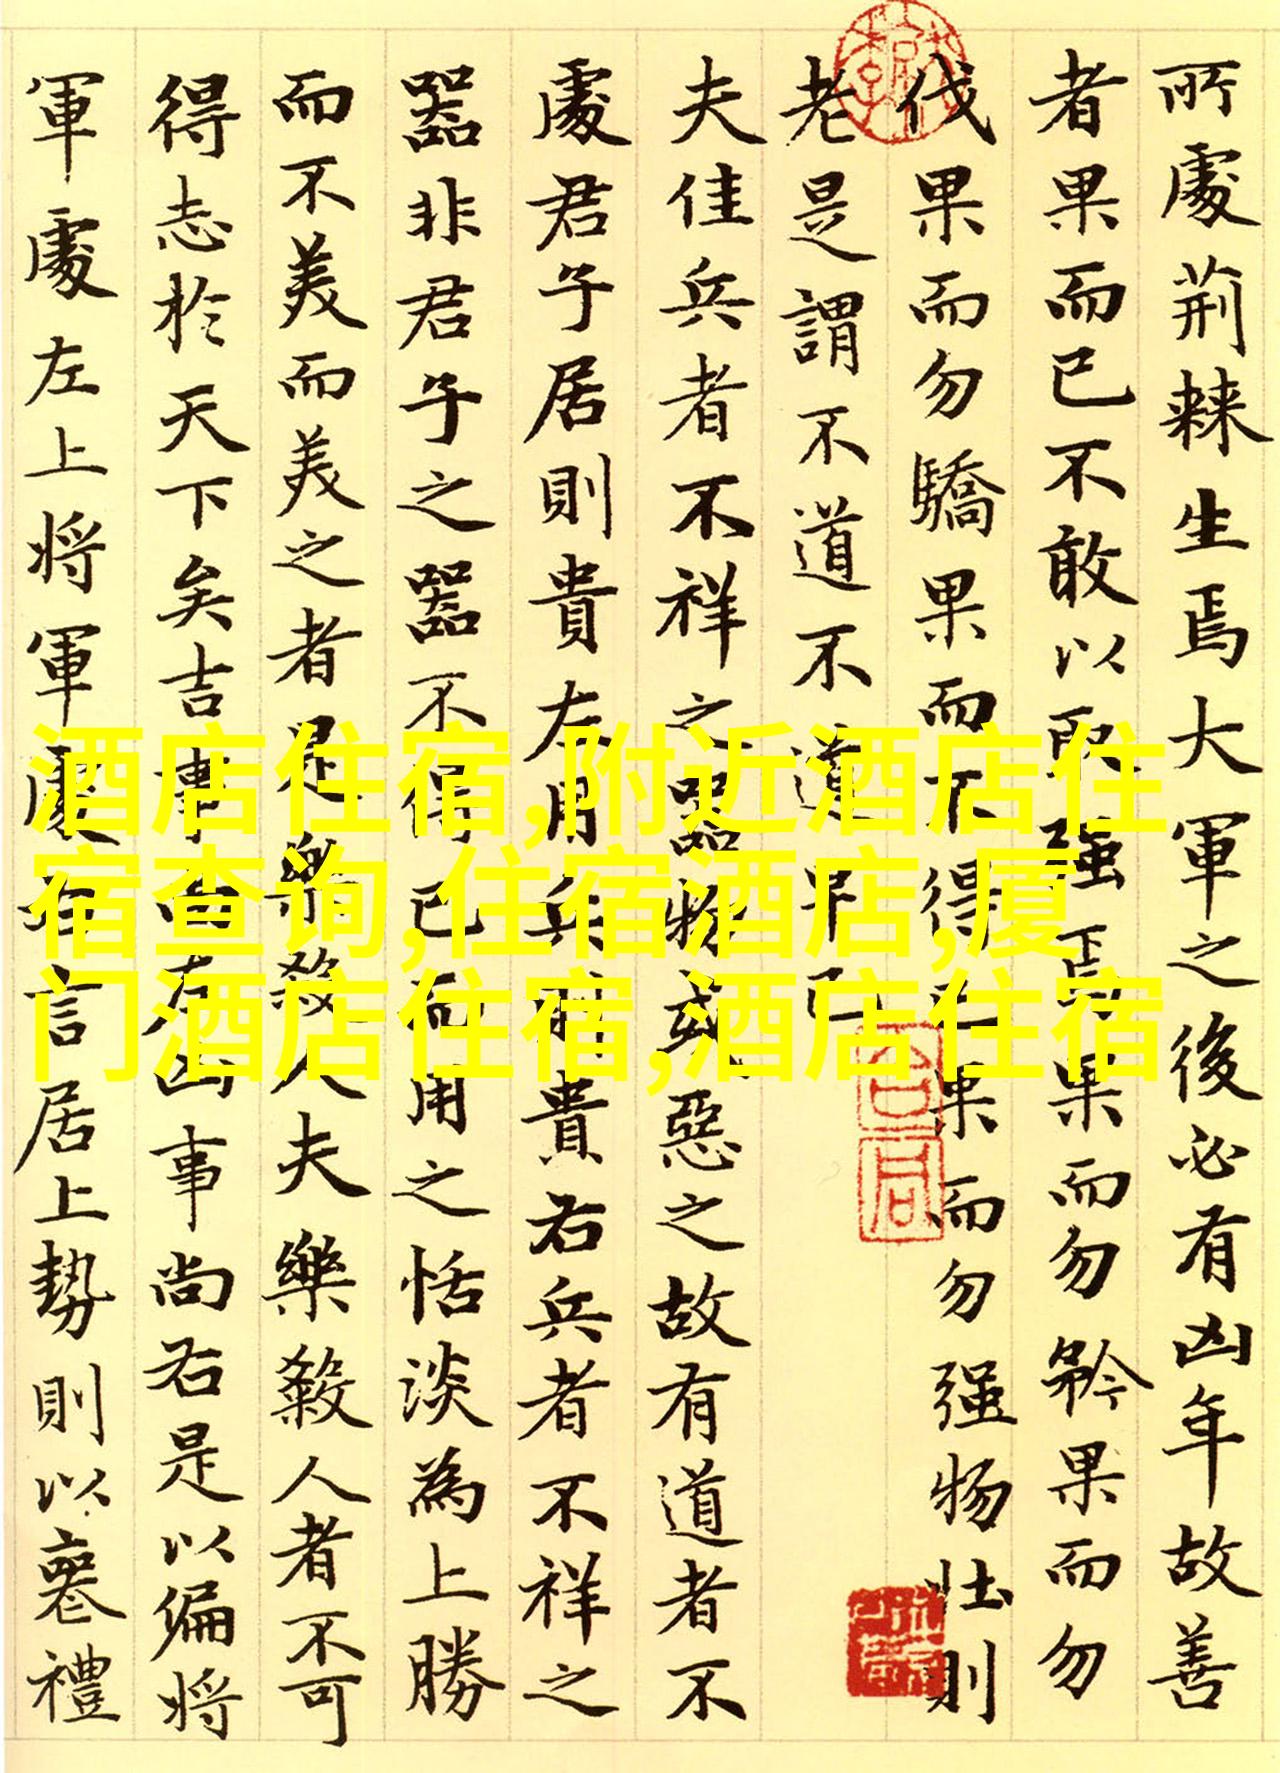 所處荊棘生焉大軍之後必有凶年故善
者果而已不敢以取强焉果而勿矜果而勿
伐果而勿驕果而不得已果而勿强物壮則
老是謂不道不道早已
夫佳兵者不祥之器物或惡之故有道者不
處君子居則貴左用兵則貴右兵者不祥之
器非君子之器不得已而用之恬淡為上勝
而不美而美之者是樂殺人夫樂殺人者不可
得志於天下矣吉事尚左凶事尚右是以偏將
軍處左上將軍處右言居上勢則以喪禮
酒店住宿,附近酒店住
宿查询,住宿酒店,厦
门酒店住宿,酒店住宿